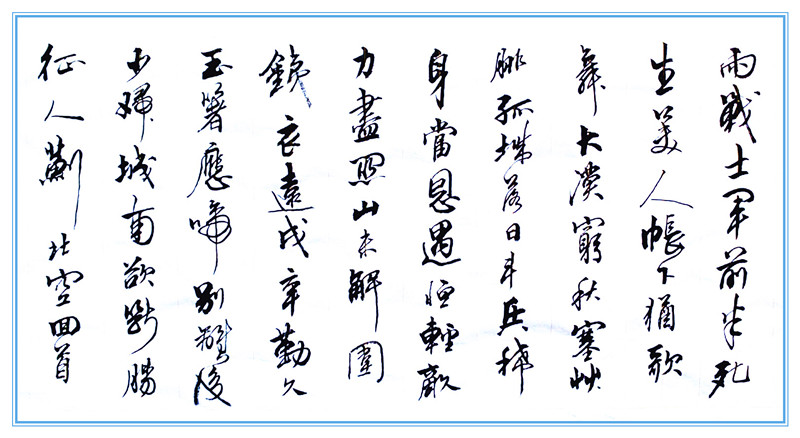 雨戰士軍前半死
生美人帳下猶歌
舞大漠窮秋塞艸
腓孤城落日斗兵稀
身當恩遇恒輕敵
力盡關山未解圍
銕衣遠戍辛勤久
玉箸應啼別離後
少婦城南欲斷腸
征人薊北空回首